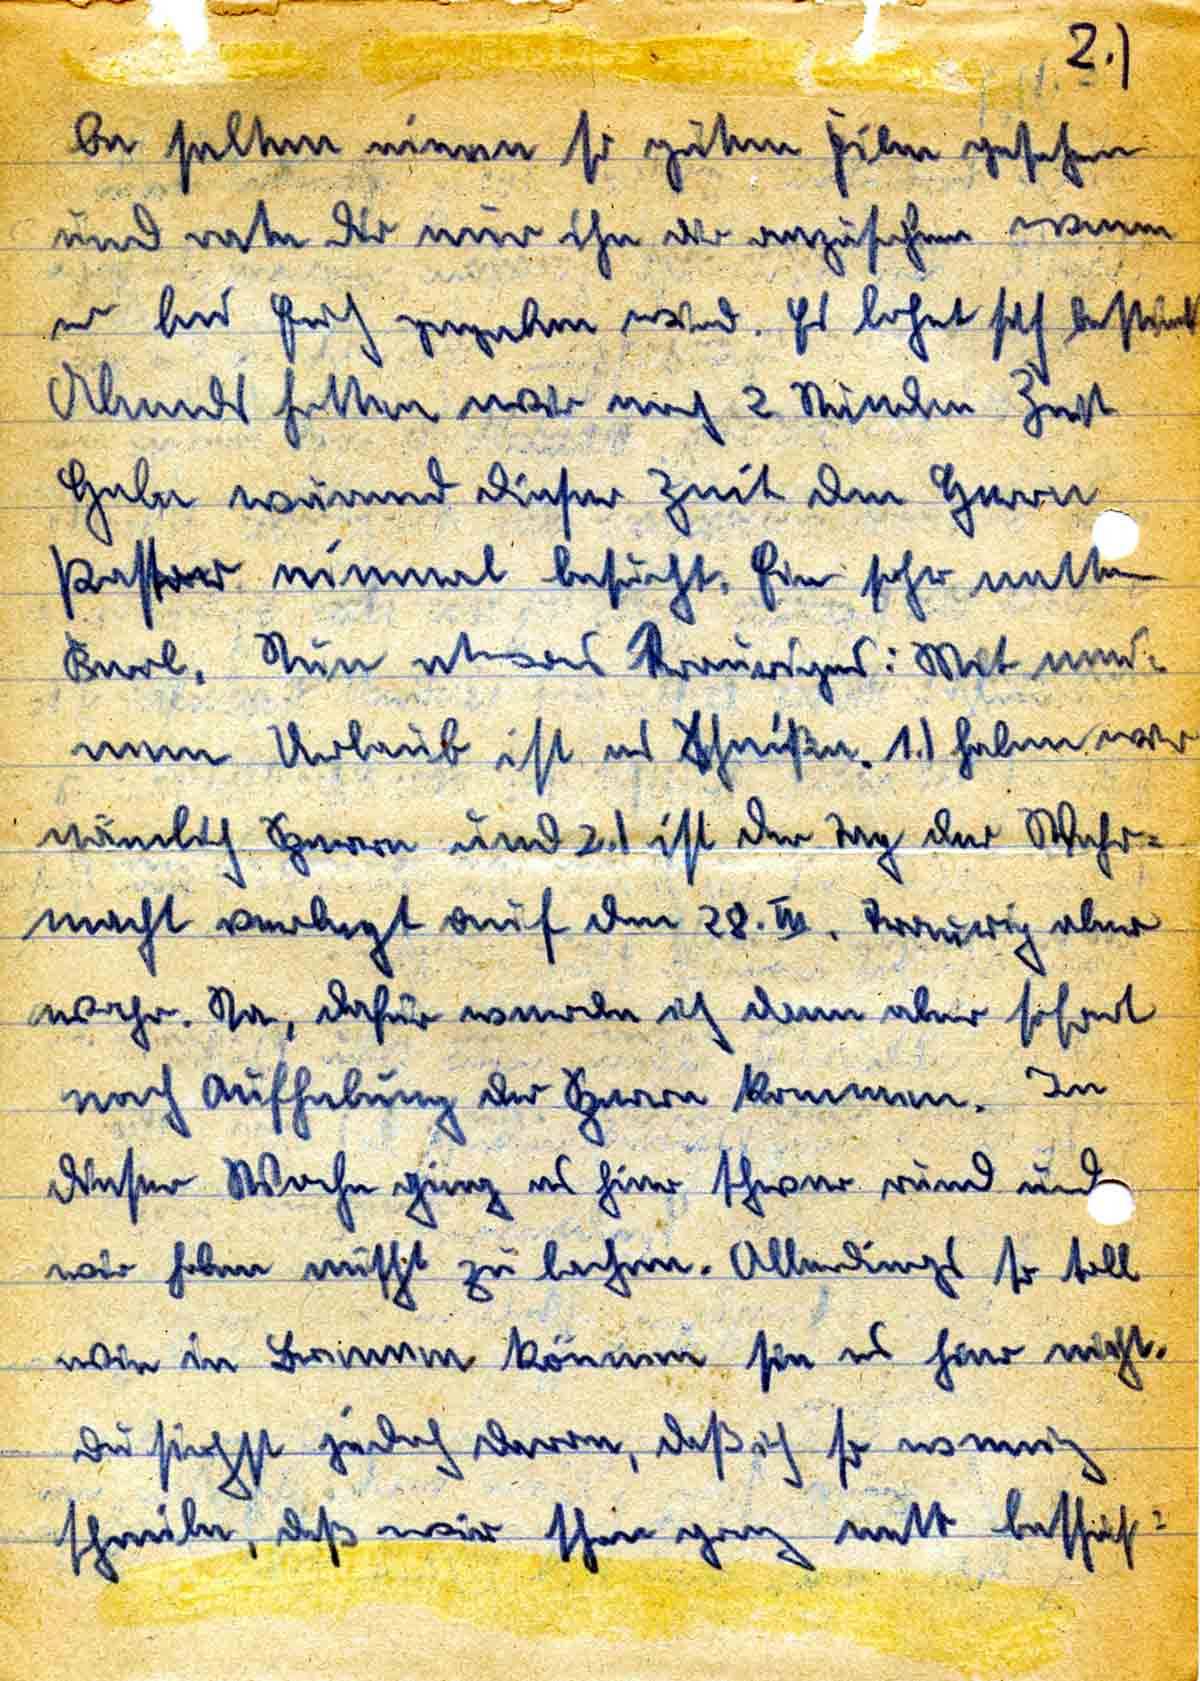 2.)
be selten einen so guten Film gesehen
und rate Dir nur ihn dir anzusehen wenn
er bei Euch gegeben wird. Es lohnt sich bestimmt
Abends hatten wir noch 2 Stunden Zeit
Habe wärend dieser Zeit den Herrn
Pastor einmal besucht. Ein sehr netter
Kerl. Nun etwas Trauriges: Mit mei-
nem Urlaub ist es Scheiße. 1.) haben wir
nämlich Sperre und 2.) ist der Tag der Wehr=
macht verlegt auf den 28. III. Traurig aber
wahr. Na, dafür werde ich dann aber sofort
nach Aufhebung der Sperre kommen. In
dieser Woche ging es hier schwer rund und
wir haben nichts zu lachen. Allerdings so toll
wie in Bremen können sie es hier nicht.
Du siehst jedoch daran, daß ich so wenig
schreibe, daß wir schon ganz nett beschäf=